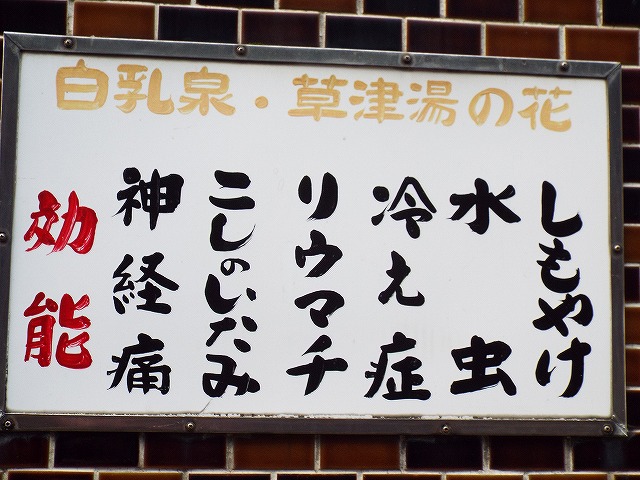 白乳泉・草津湯の花
効能
神経痛
こしのいたみ
リウマチ
冷え症
水虫
しもやけ